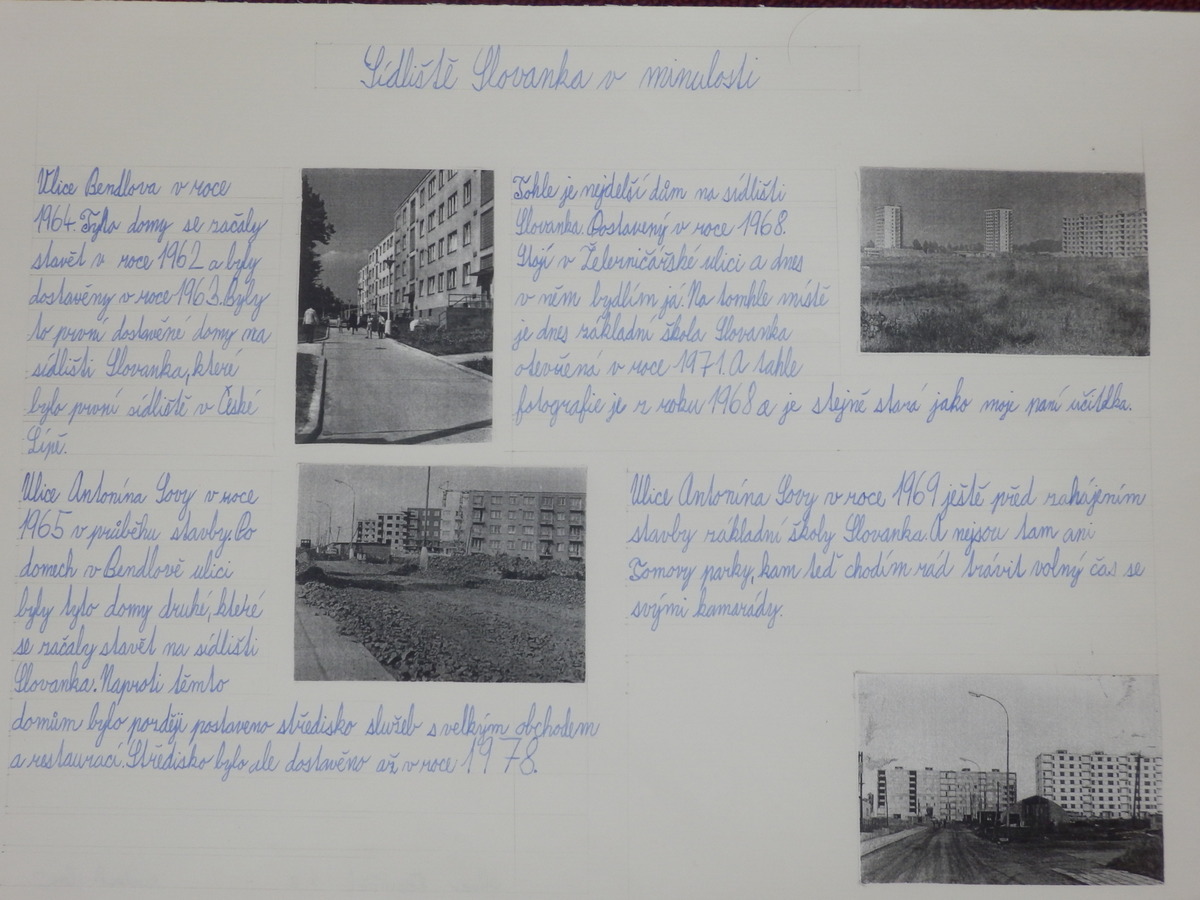 Sídliště Slovanka v minulosti
Ulice Bendlova v roce
1964. Tyto domy se začaly
stavět v roce 1962 a byly
dostavěny v roce 1963. Byly
to první dostavěné domy na
sídlišti Slovanka, které
bylo první sídliště v České
Lípě.
Tohle je nejdelší dům na sídlišti
Slovanka. Postavený v roce 1968.
Stojí v Železničářské ulici a dnes
v něm bydlím já. Na tomhle místě
je dnes základní škola Slovanka
otevřená v roce 1971. A tahle
fotografie je z roku 1968 a je stejně stará jako moje paní učitelka.
Ulice Antonína Sovy v roce
1965 v průběhu stavby. Po
domech v Bendlově ulici
byly tyto domy druhé, které
se začaly stavět na sídlišti
Slovanka. Naproti těmto
domům bylo později postaveno středisko služeb s velkým obchodem
a restaurací. Středisko bylo ale dostavěno až v roce 1978.
Ulice Antonína Sovy v roce 1969 ještě před zahájením
stavby základní školy Slovanka. A nejsou tam ani
Tomovy parky, kam teď chodím rád trávit volný čas se
svými kamarády.